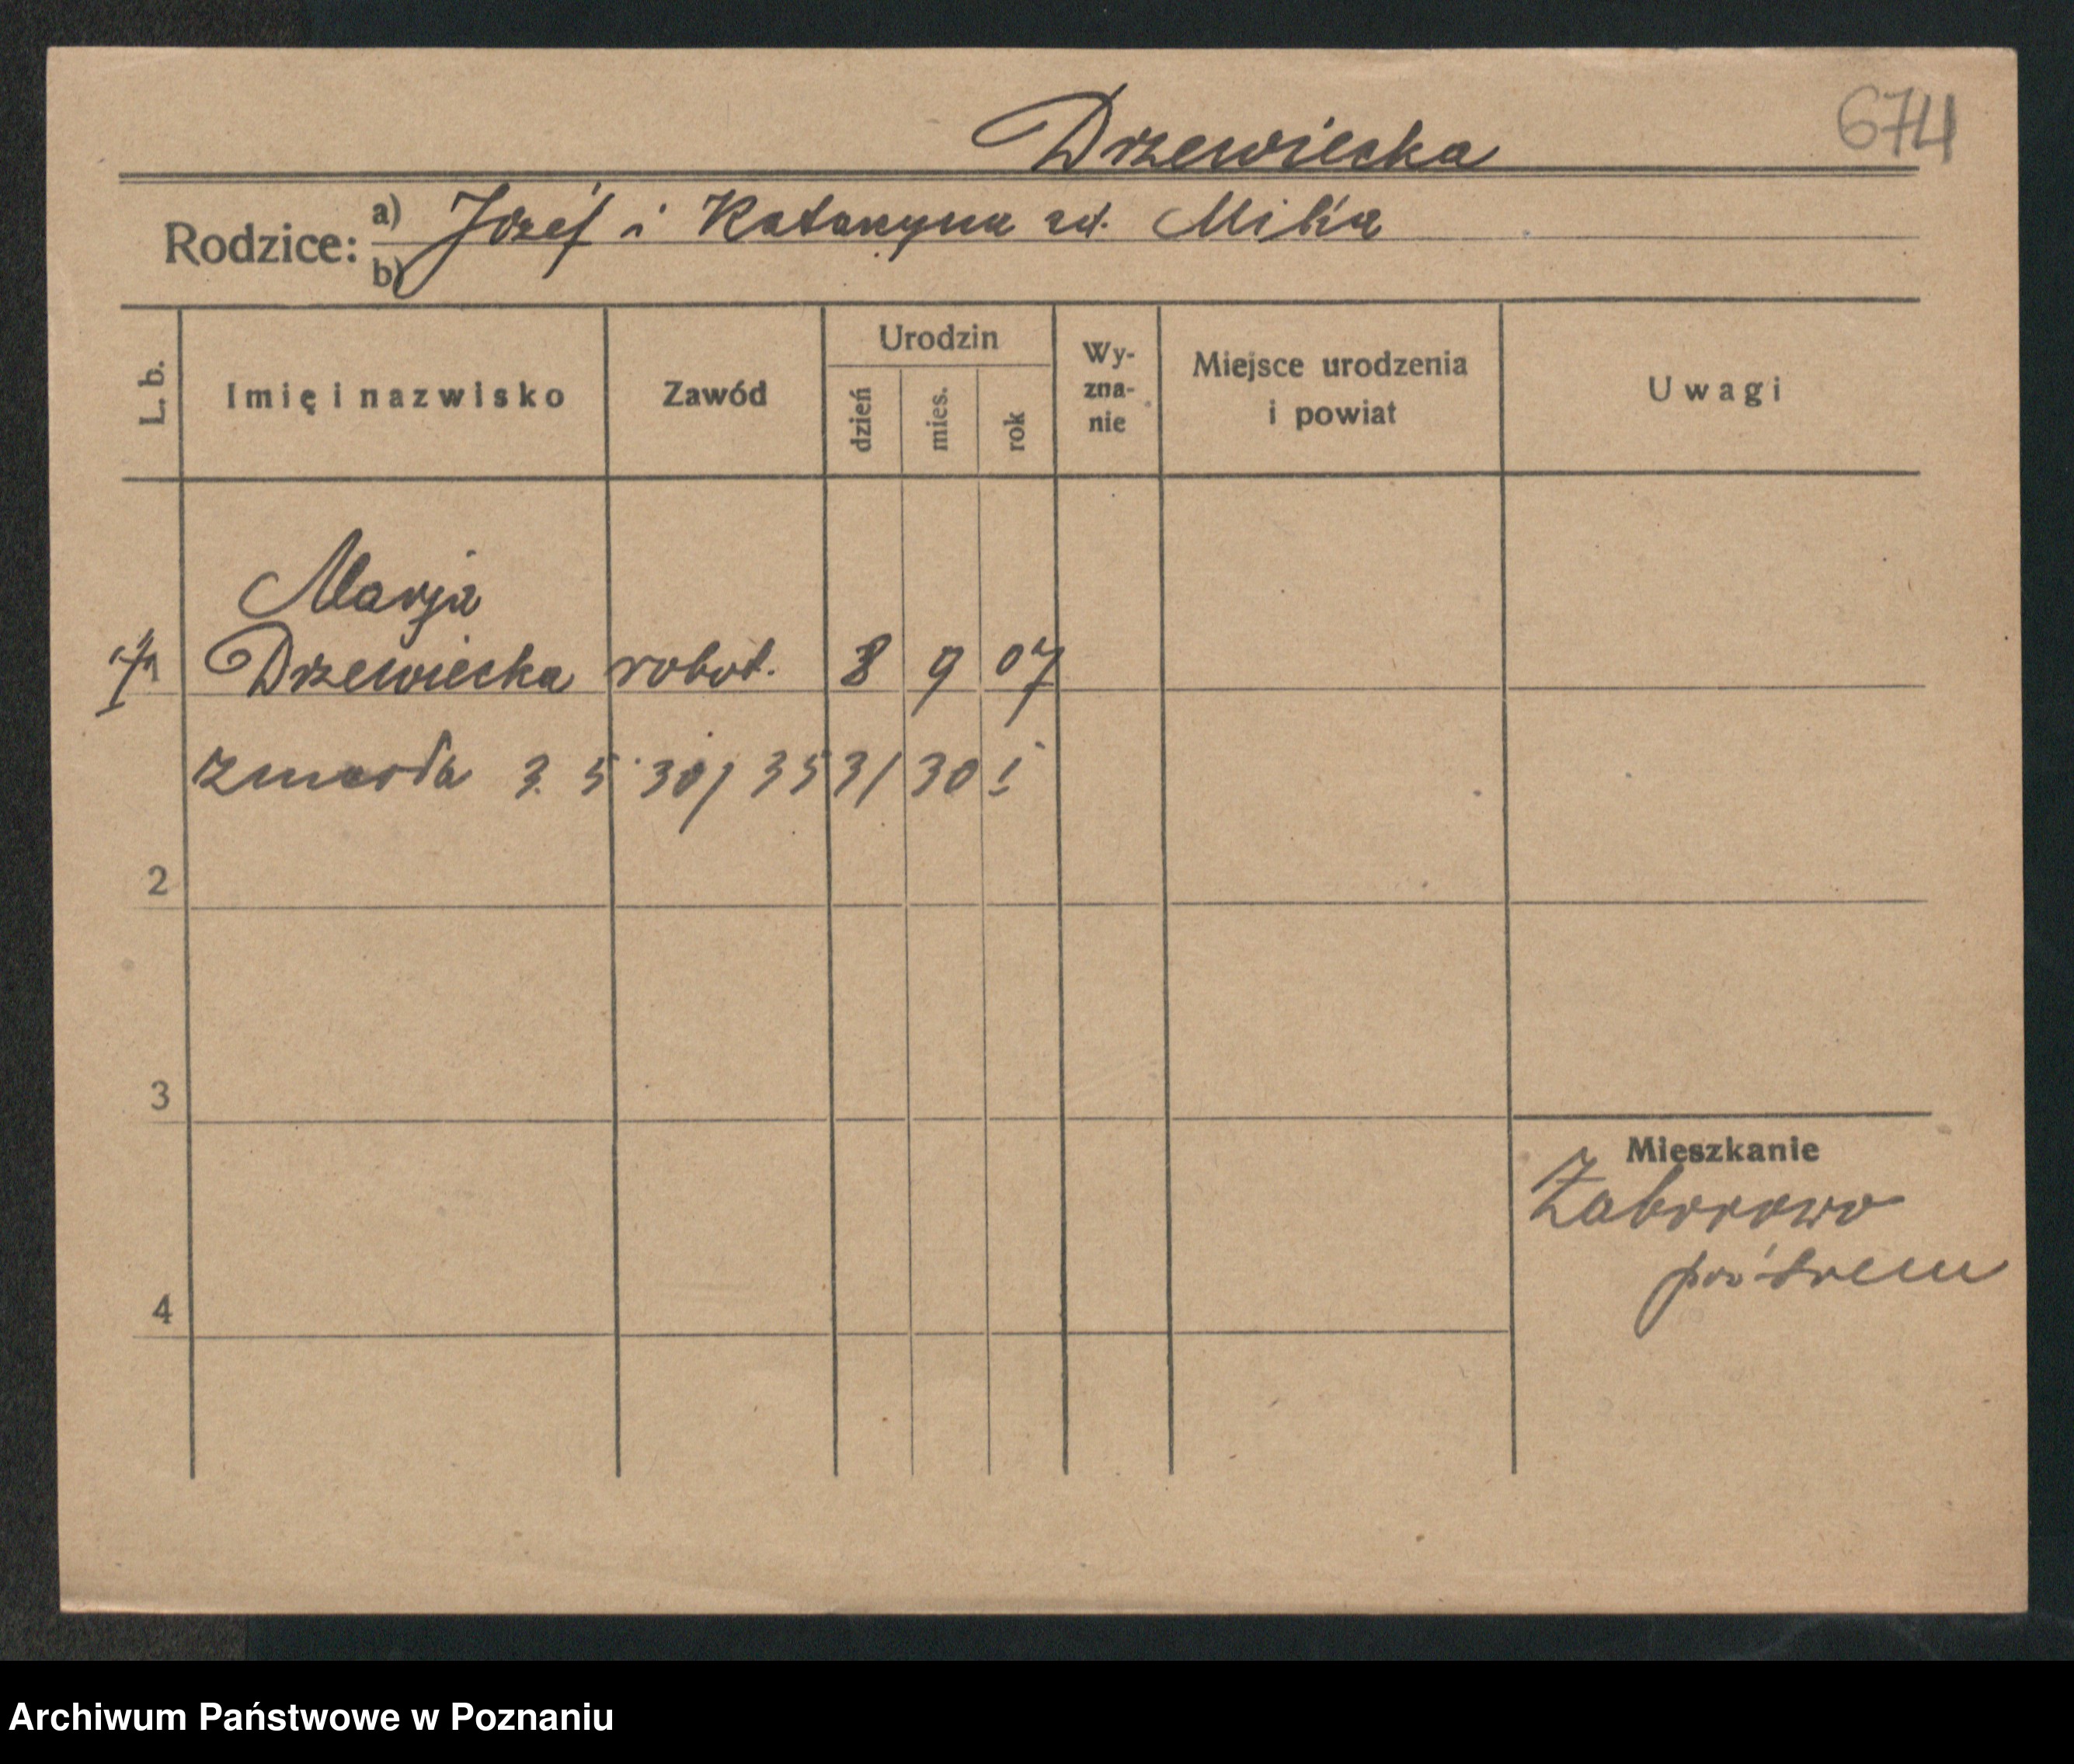 674
Drzewiecka
Rodzice: a) Józef i Katarzyna zd. Mika
b)
L. b. Imię i nazwisko Zawód Urodzin dzień mies. rok Wy-zna-nie Miejsce urodzenia i powiat Uwagi
Marja
1 Drzewiecka robot. 8 9 07
zmarła 3. 5. 30 / 3531/30 I
2
3
Mieszkanie
Zaborowo
4
Archiwum Państwowe w Poznaniu